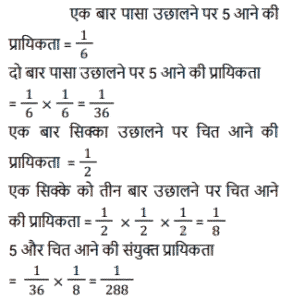 एक बार पासा उछालने पर 5 आने की
प्रायिकता = 1/6
दो बार पासा उछालने पर 5 आने की प्रायिकता
= 1/6 × 1/6 = 1/36
एक बार सिक्का उछालने पर चित आने की
प्रायिकता = 1/2
एक सिक्के को तीन बार उछालने पर चित आने
की प्रायिकता = 1/2 × 1/2 × 1/2 = 1/8
5 और चित आने की संयुक्त प्रायिकता
= 1/36 × 1/8 = 1/288